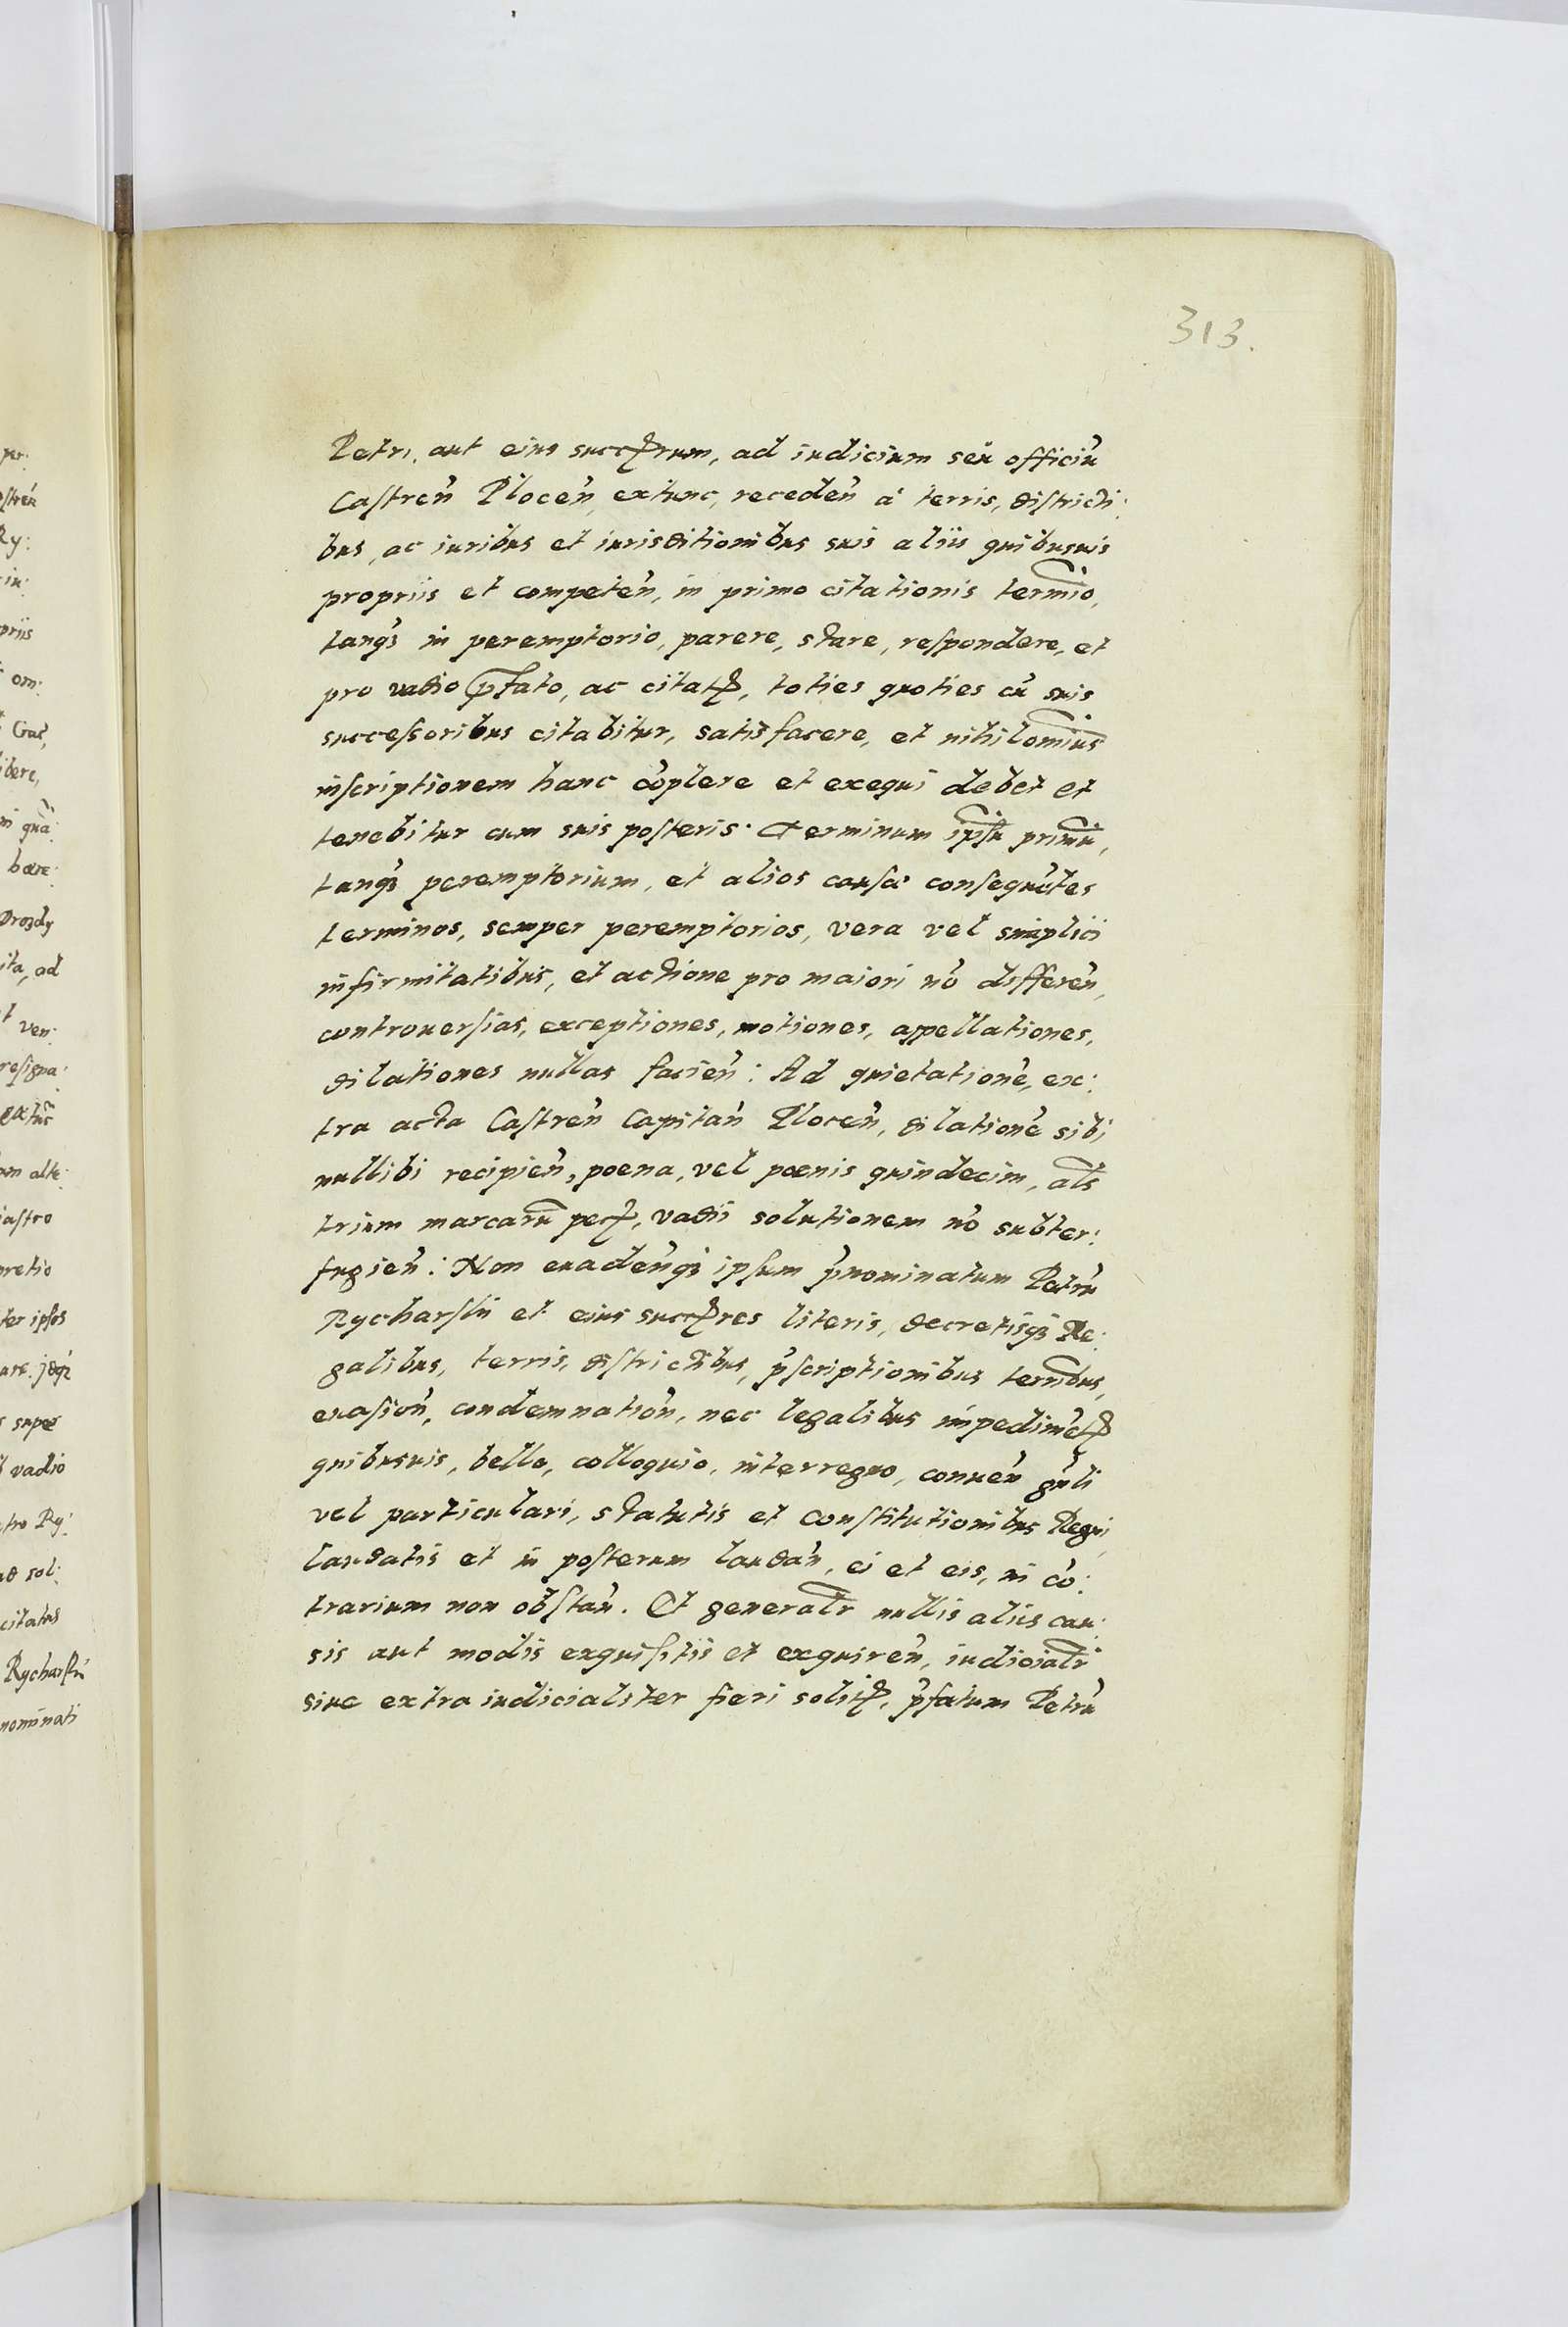 313.
Petri, aut eius succrum, ad iudicium seu officiū
Castren̄ Plocen̄, extunc, receden̄ à terris, districti:
bus, ac iuribus et iurisditionibus suis aliis quibusuis
propriis et competen̄, in primo citationis termi͞o,
tanqȝ in peremptorio, parere, stare, respondere, et
pro vadio p̄fato, ac citat, toties quoties cū suis
successoribus citabitur, satisfacere, et nihilomi͞us
inscriptionem hanc cōplere et exequi debet et
tenebitur cum suis posteris. Terminum ip̄sū primū,
tanqȝ peremptorium, et alios causā consequn̄tes
terminos, semper peremptorios, vera vel simplici
infirmitatibus, et actione pro maiori nō differen̄,
controuersias, exceptiones, motiones, appellationes,
dilationes nullas facien̄: Ad quietationē, ex:
tra acta Castren̄ Capitan̄ Plocen̄, dilationē sibi
nullibi recipien̄, poena, vel poenis quindecim, al̄s
trium marcarū pec, vadii solutionem nō subter:
fugien̄: Non euaden̄qȝ ipsum p̄nominatum Petrū
Rycharski et eius succres literis, decretisqȝ Re:
galibus, terris, districtibus, p̄scriptionibus term̄bus,
euasion̄, condemnation̄, nec legalibus impedimē
quibusuis, bello, colloquio, interregno, conuen̄ gn̄li
vel particulari, statutis et constitutionibus Regni,
laudatis et in posterum laudan̄, ei et eis, in cō:
trarium non obstan̄. Et generalr̄ nullis aliis cau:
sis aut modis exquisitis et exquiren̄, iudicialr̄
siue extra iudicialiter fieri solit, p̄fatum Petrū